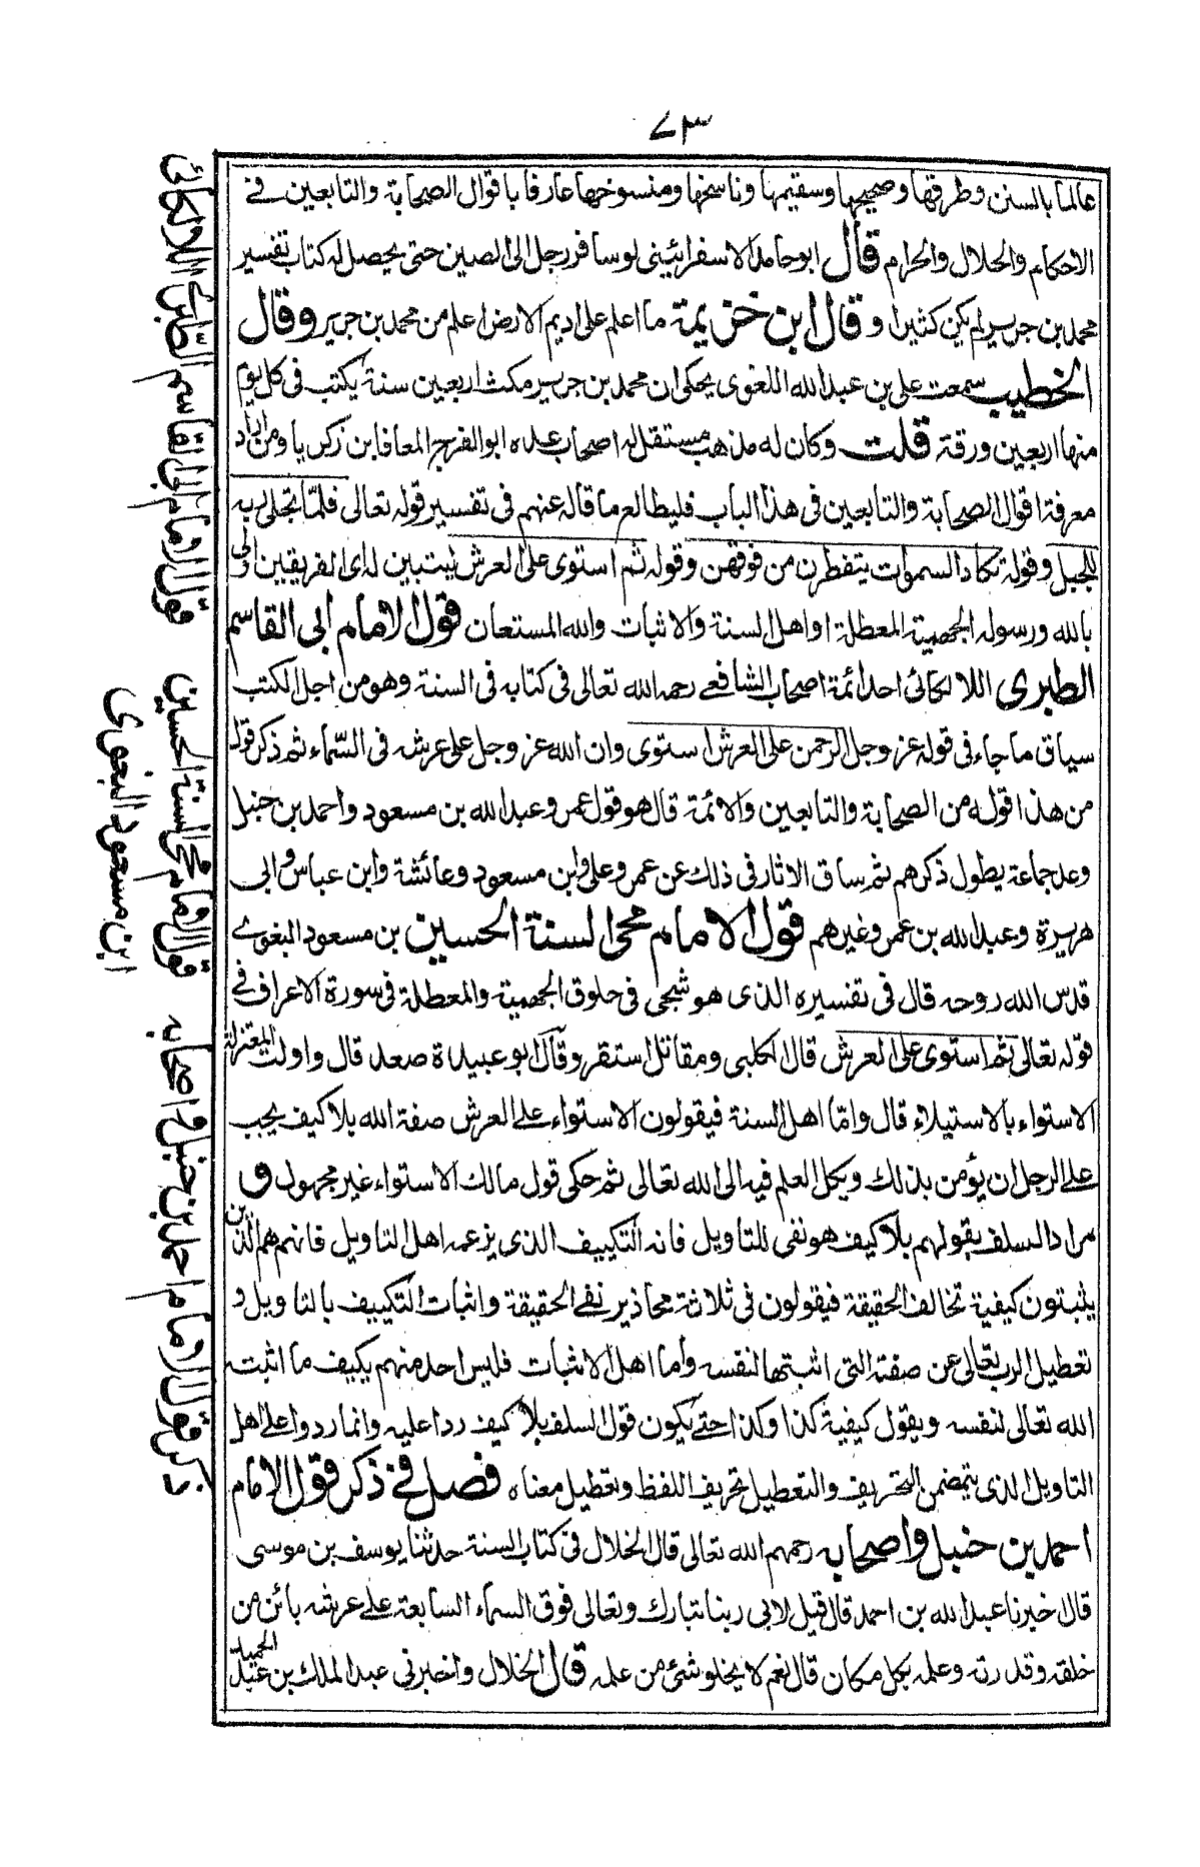 ٧٣
عالما بالسنن وطرقها وصحيحها وسقيمها وناسخها ومنسوخها عارفا باقوال الصحابة والتابعين في
الاحكام والحلال والحرام قال ابو حامد الاسفرائيني لو سافر رجل الى الصين حتى يحصل له كتاب تفسير
محمد بن جرير لم يكن كثيرا وقال ابن خزيمة ما اعلم على اديم الارض اعلم من محمد بن جرير وقال
الخطيب سمعت علي بن عبد الله اللغوى يحكى ان محمد بن جرير مكث اربعين سنة يكتب فى كل يوم
منها اربعين ورقة قلت وكان له مذهب مستقل له اصحاب عدة ابو الفرج المعافا بن زكريا ومن اراد
معرفة اقوال الصحابة والتابعين فى هذا الباب فليطالع ما قاله عنهم فى تفسير قوله تعالى فلمّا تجلى ربه
للجبل وقوله تكاد السموات يتفطرن من فوقهن وقوله ثم استوى على العرش ليتبين له اى الفريقين اولى
بالله ورسوله الجهمية المعطلة او اهل السنة والاثبات والله المستعان قول الامام ابى القاسم
الطبرى اللالكائى احد ائمة اصحاب الشافعى رحمه الله تعالى فى كتابه فى السنة وهو من اجل الكتب
سياق ما جاء فى قوله عز وجل الرحمن على العرش استوى وان الله عز وجل على عرشه فى السّماء ثم ذكر قول
من هذا قوله من الصحابة والتابعين والائمة قال هو قول عمر وعبد الله بن مسعود واحمد بن حنبل
وعد جماعة يطول ذكرهم ثم ساق الاثار فى ذلك عن عمر وعلى وابن مسعود وعائشة وابن عباس وابى
هريرة وعبد الله بن عمر وغيرهم قول الامام محى السنة الحسين بن مسعود البغوى
قدس الله روحه قال فى تفسيره الذى هو شجى فى حلوق الجهمية والمعطلة فى سورة الاعراف فى
قوله تعالى ثم استوى على العرش قال الكلبى ومقاتل استقر وقال ابو عبيدة صعد قال واولت المعتزلة
الاستواء بالاستيلاء قال وامّا اهل السنة فيقولون الاستواء على العرش صفة الله بلا كيف يجب
على الرجل ان يؤمن بذلك ويكل العلم فيه الى الله تعالى ثم حكى قول مالك الاستواء غير مجهول و
مراد السلف بقولهم بلا كيف هو نفى للتاويل فانه التكييف الذى يزعمه اهل التاويل فانهم هم الذين
يثبتون كيفية تخالف الحقيقة فيقولون فى ثلاثة محاذير نفى الحقيقة واثبات التكييف بالتاويل و
تعطيل الرب تعالى عن صفته التى اثبتها لنفسه وأما اهل الاثبات فليس احد منهم يكيف ما اثبت
الله تعالى لنفسه ويقول كيفية كذا وكذا حتى يكون قول السلف بلا كيف ردا عليه وانما ردوا على اهل
التاويل الذى يتضمن التحريف والتعطيل تحريف اللفظ وتعطيل معناه فصل فى ذكر قول الامام
احمد بن حنبل واصحابه رحمهم الله تعالى قال الخلال فى كتاب السنة حدثنا يوسف بن موسى
قال اخبرنا عبد الله بن احمد قال قيل لابى ربنا تبارك وتعالى فوق السماء السابعة على عرشه بائن من
خلقه وقدرته وعلمه بكل مكان قال نعم لا يخلو شئ من علمه قال الخلال واخبرنى عبد الملك بن عبد الحميد
قول الامام ابى القاسم الطبرى اللالكائى
قول الامام محى السنة الحسين
ابن مسعود البغوى
ذكر قول الامام احمد بن حنبل واصحابه